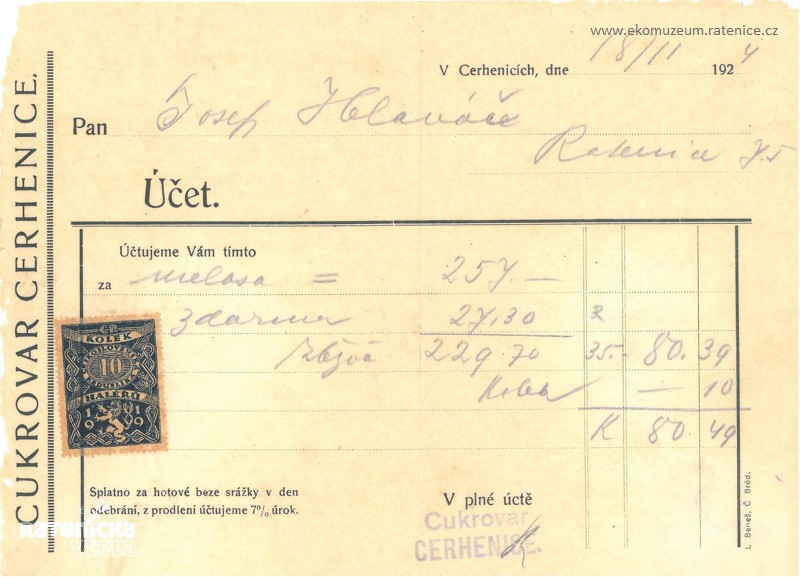 www.ekomuzeum.ratenice.cz
CUKROVAR CERHENICE.
V Cerhenicích, dne 18/11 1924
Pan Josef Hlaváče
Ratenice
Účet.
Účtujeme Vám tímto
za melasa = 257.—
zdarma 27.30
zbývá 229.70 35.- 80.39
Kolek — 10
K 80.49
ČR
KOLEK
10
HALÉŘŮ
1919
Splatno za hotové beze srážky v den
odebrání, z prodlení účtujeme 7% úrok.
V plné úctě
Cukrovar
CERHENICE.
L. Beneš, Č. Brod.
ratenická
včela